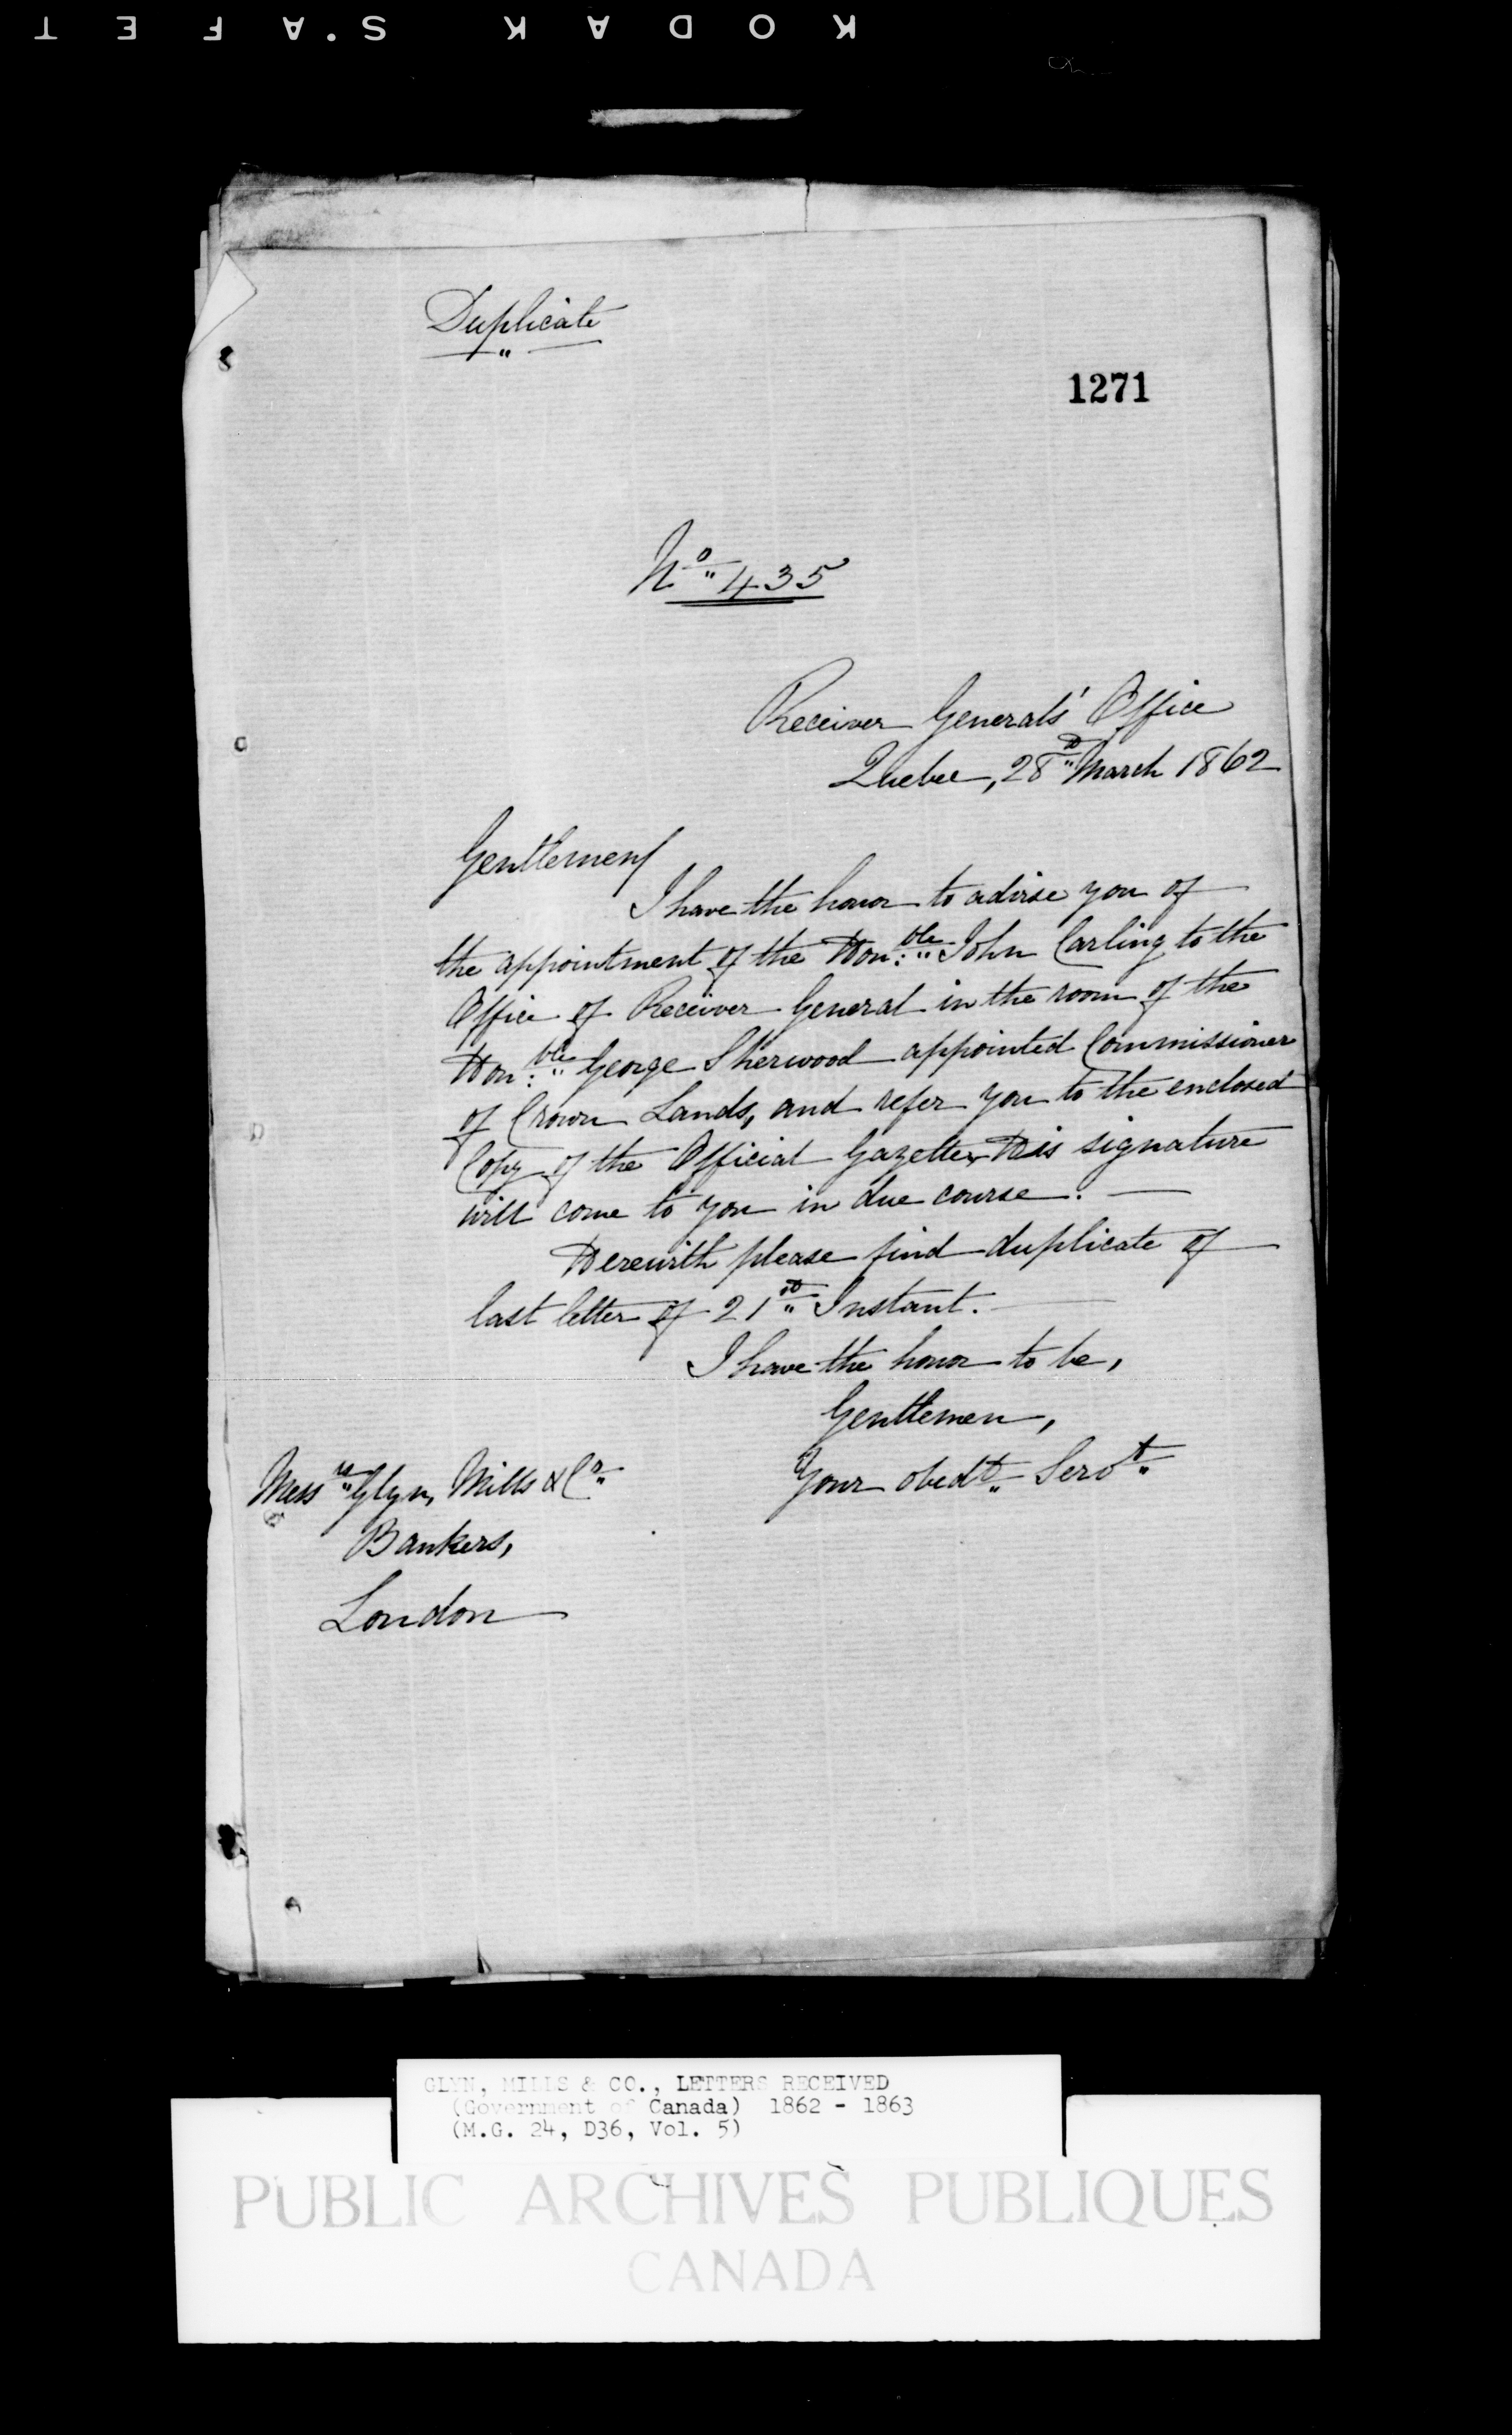 KODAK S.AFET
Duplicate
1271
No 435
Receiver Generals' Office
Quebec, 28th March 1862
Gentlemen/
I have the honor to advise you of
the appointment of the Hon:ble John Carling to the
Office of Receiver General in the room of the
Hon:ble George Sherwood appointed Commissioner
of Crown Lands, and refer you to the enclosed
Copy of the Official Gazette, His signature
will come to you in due course.
Herewith please find duplicate of
last letter of 21st Instant.
I have the honor to be,
Gentlemen,
Your obedt Servt
Messrs Glyn, Mills & Co
Bankers,
London
GLYN, MILLS & CO., LETTERS RECEIVED
(Government of Canada) 1862 - 1863
(M.G. 24, D36, Vol. 5)
PUBLIC ARCHIVES PUBLIQUES
CANADA